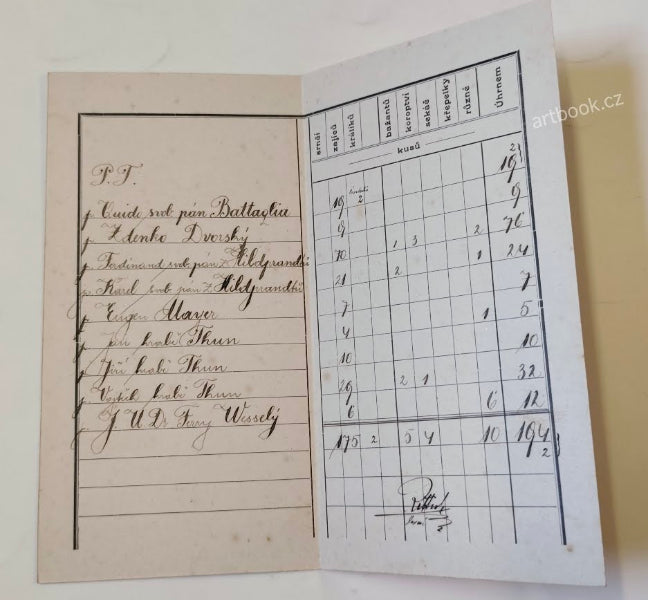 P. T.
p. Quido svob. pán Battaglia
p. Zdenko Dvorský
p. Ferdinand svob. pán z Hildprandtů
p. Karel svob. pán z Hildprandtů
p. Eugen Mayer
p. Jan hrabě Thun
p. Jiří hrabě Thun
p. Vojtěch hrabě Thun
p. J U Dr Ferry Wesselý
srnčí zajíců králíků bažantů koroptví sekáč křepelky různé Úhrnem
kusů
19 2 19 2
9 9
70 1 3 2 76
21 2 1 24
7 7
4 1 5
10 10
29 2 1 32
6 6 12
175 2 5 4 10 194
2
artbook.cz
artbook.cz